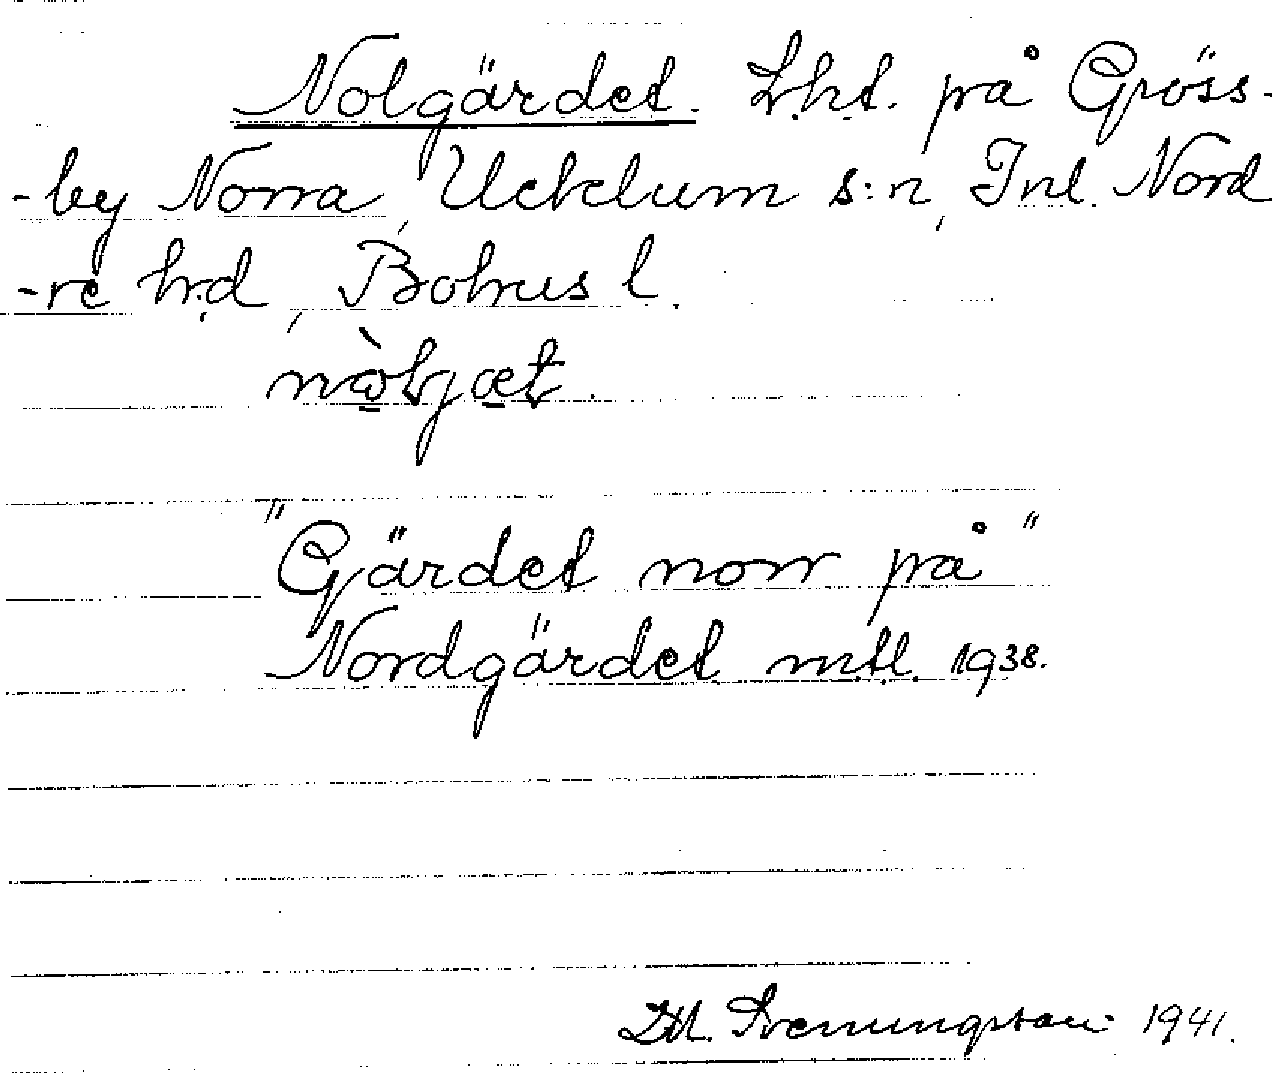 Nolgärdet. Lht. på Gröss-
-by Norra, Ucklum s:n, Inl. Nord
-re h:d, Bohus l.
"Gärdet norr på"
Nordgärdet mtl. 1938.
Sveningsson 1941.